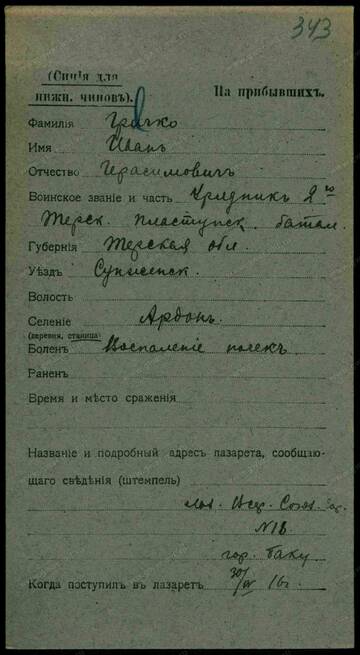 343
(Синія для
нижн. чиновъ).
На прибывшихъ.
Фамилія Грачко
Имя Иванъ
Отчество Герасимовичъ
Воинское званіе и часть Урядникъ 2го
Терск. пластунск. батал.
Губернія Терская обл.
Уѣздъ Сунженск.
Волость
Селеніе Ардонъ
(деревня, станица)
Боленъ Воспаленіе почекъ
Раненъ
Время и мѣсто сраженія
Названіе и подробный адресъ лазарета, сообщаю-
щаго свѣдѣнія (штемпель)
Всер. Союз.
гор. Баку
Когда поступилъ въ лазаретъ 16г.